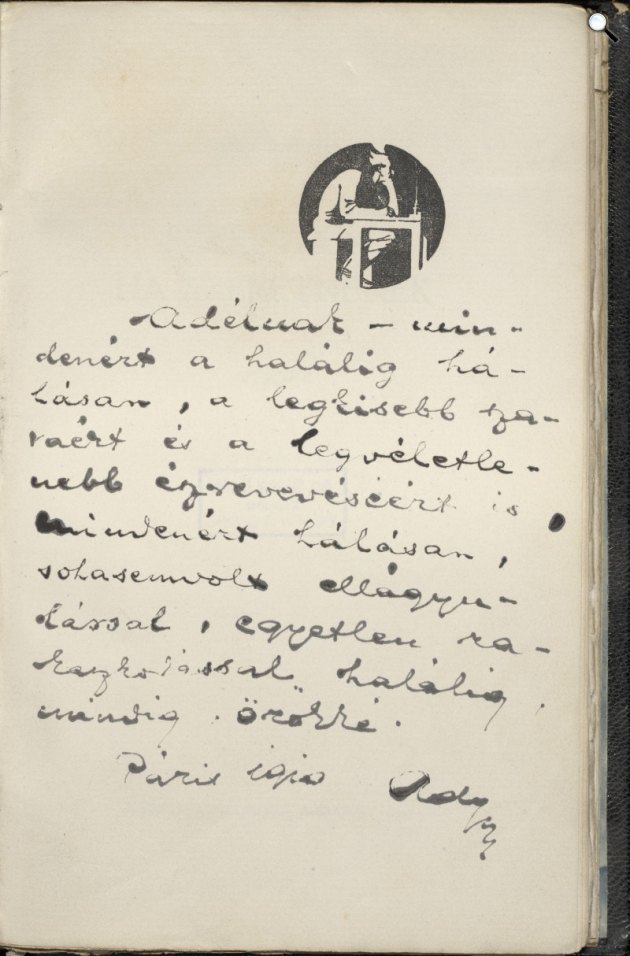 Adélnak – min-
denért a halálig há-
lásan, a legkisebb sza-
váért és a legvéletle-
nebb észrevevéséért is
mindenért hálásan,
sohasemvolt ellágyu-
lással, egyetlen ra-
gaszkodással halálig,
mindig. örökké.
Páris Ady